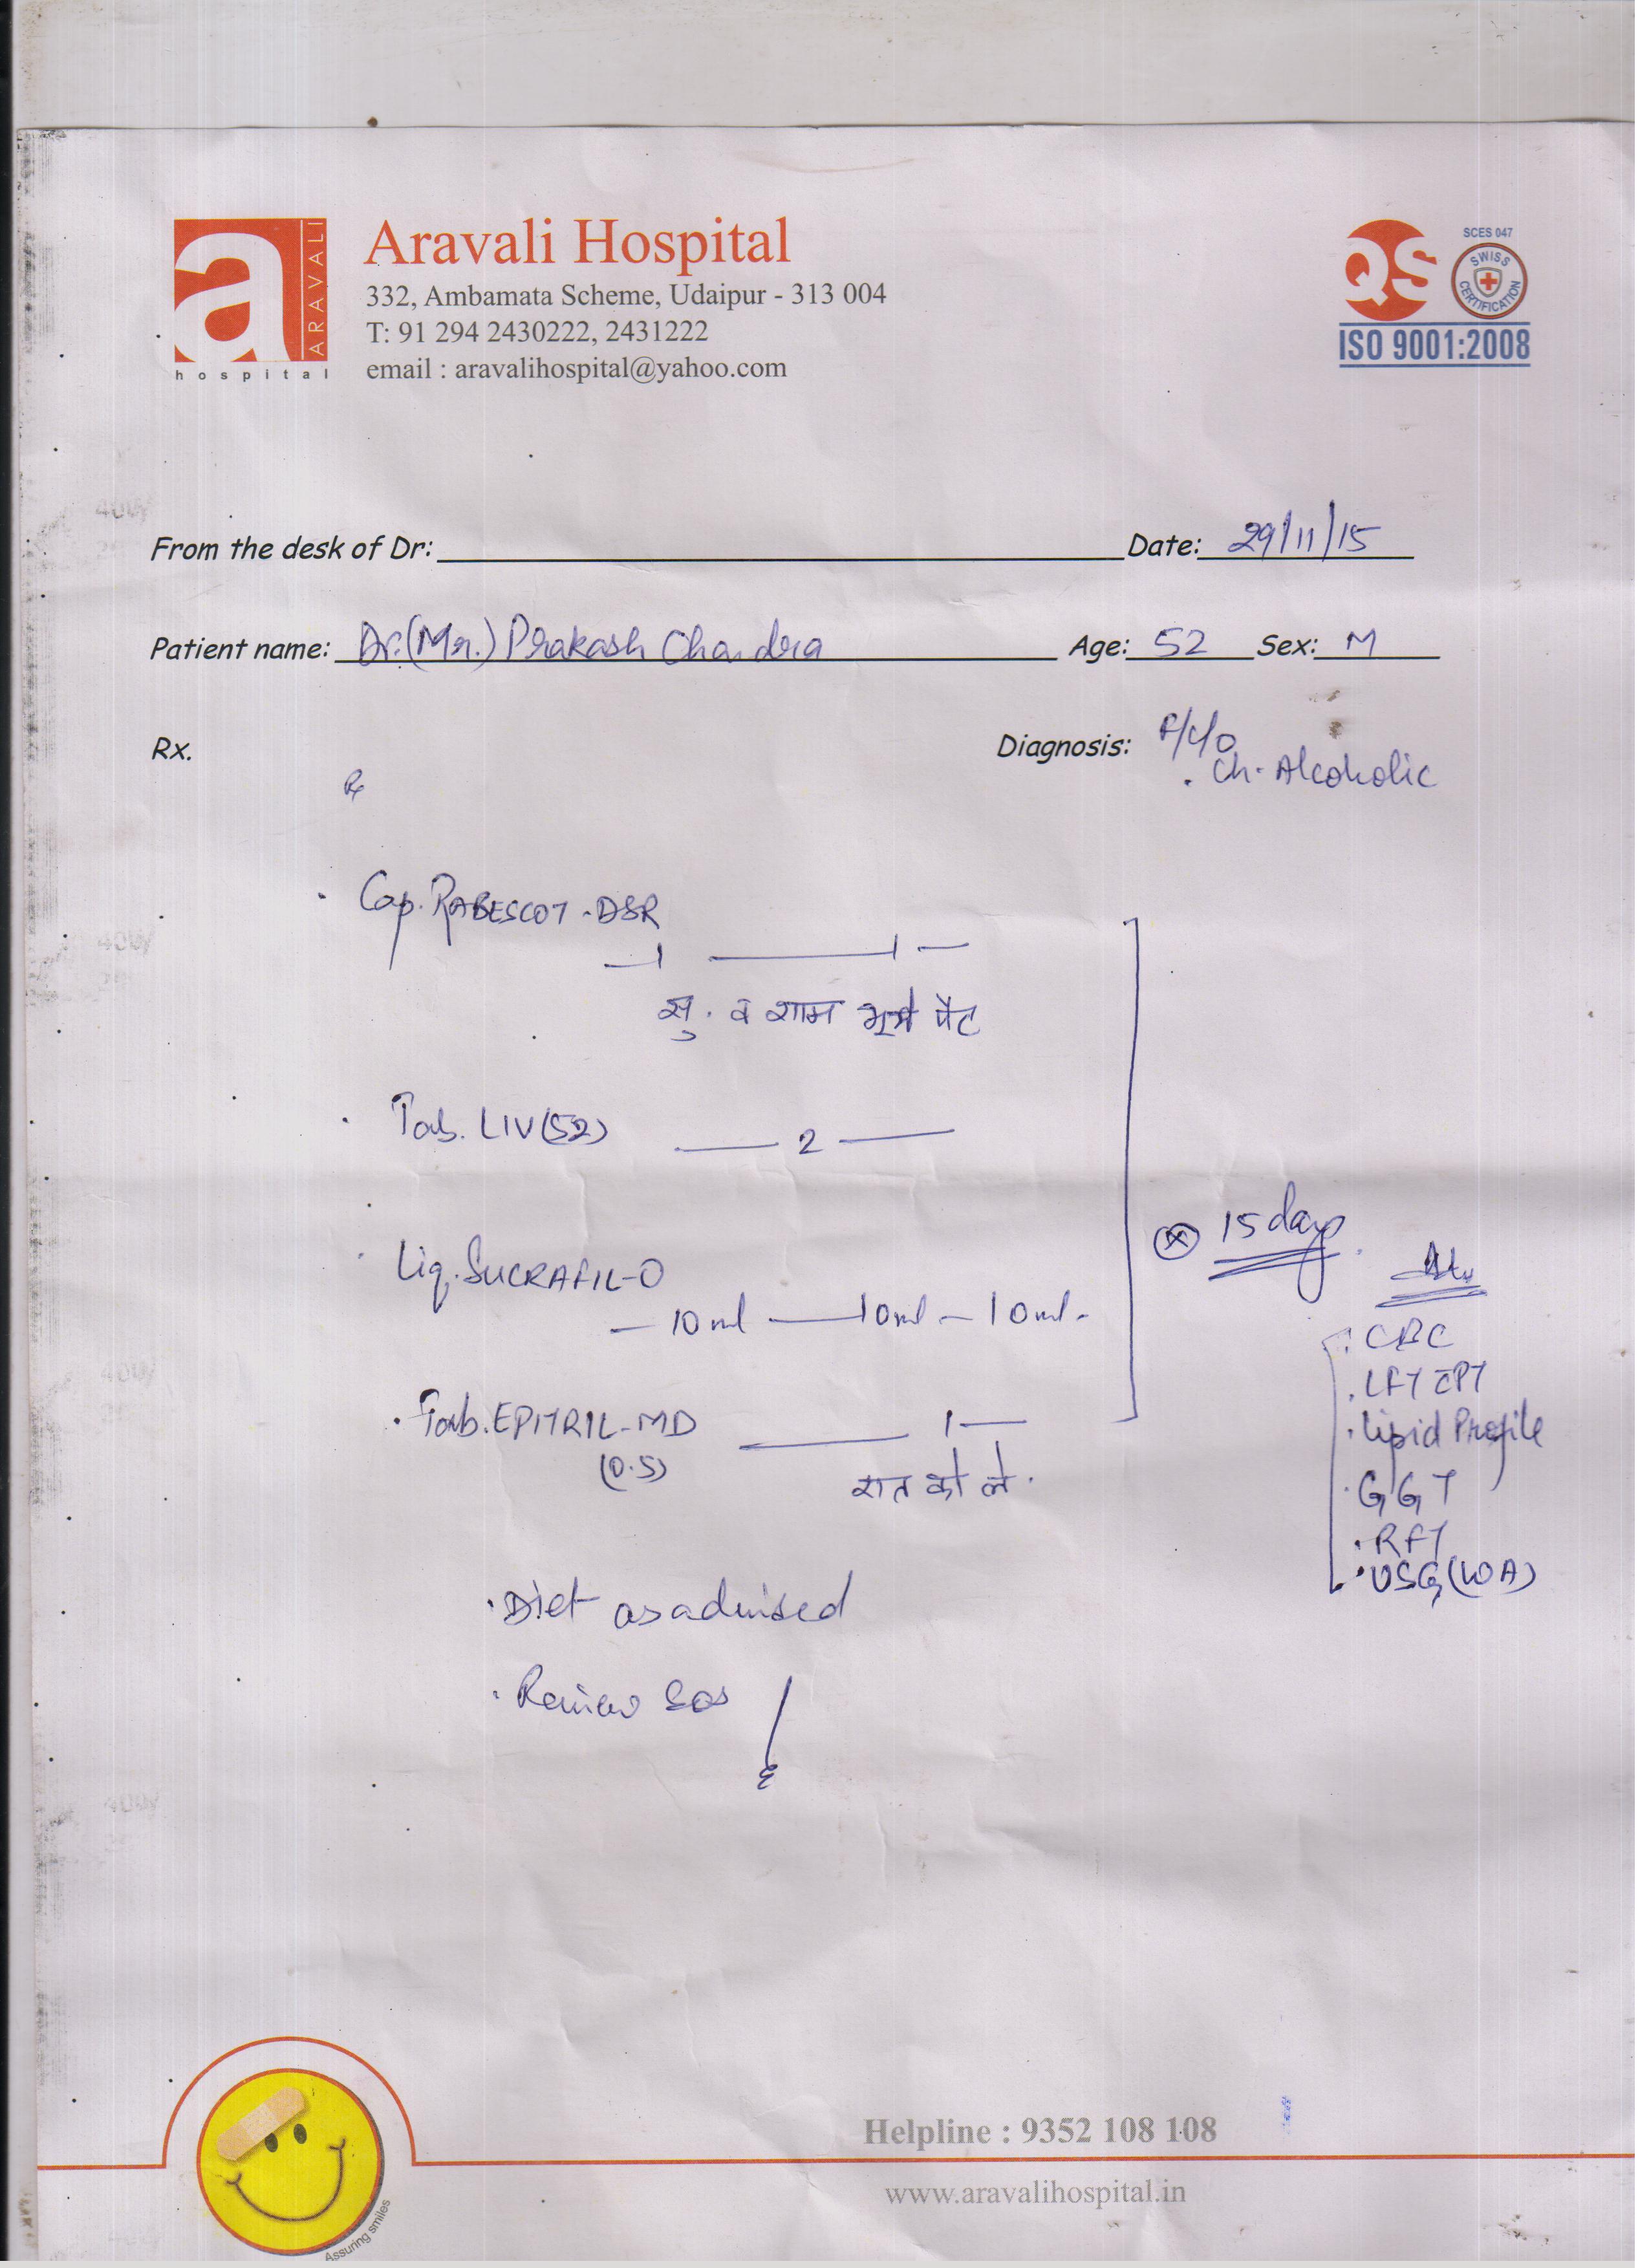 a
ARAVALI
hospital
Aravali Hospital
332, Ambamata Scheme, Udaipur - 313 004
T: 91 294 2430222, 2431222
email : aravalihospital@yahoo.com
QS
SCES 047
SWISS CERTIFICATION
ISO 9001:2008
From the desk of Dr: Date: 29/11/15
Patient name: Dr.(Mr.) Prakash Chandra Age: 52 Sex: M
Rx. Diagnosis:
. Ch. Alcoholic
Rx
. Cap. RABESCOT-DSR
— 1 — 1 —
सु. व शाम भूखे पेट
. Tab. LIV(52) — 2 —
. Liq. SUCRAFIL-O
— 10ml — 10ml — 10ml.
. Tab. EPITRIL-MD — 1 —
(0.5)
रात को ले.
ⓧ 15 days
. CBC
. LFT c̄ PT
. Lipid Profile
. GGT
. RFT
. USG (WA)
. Diet as advised
. Review SOS
Helpline : 9352 108 108
www.aravalihospital.in
Assuring smiles